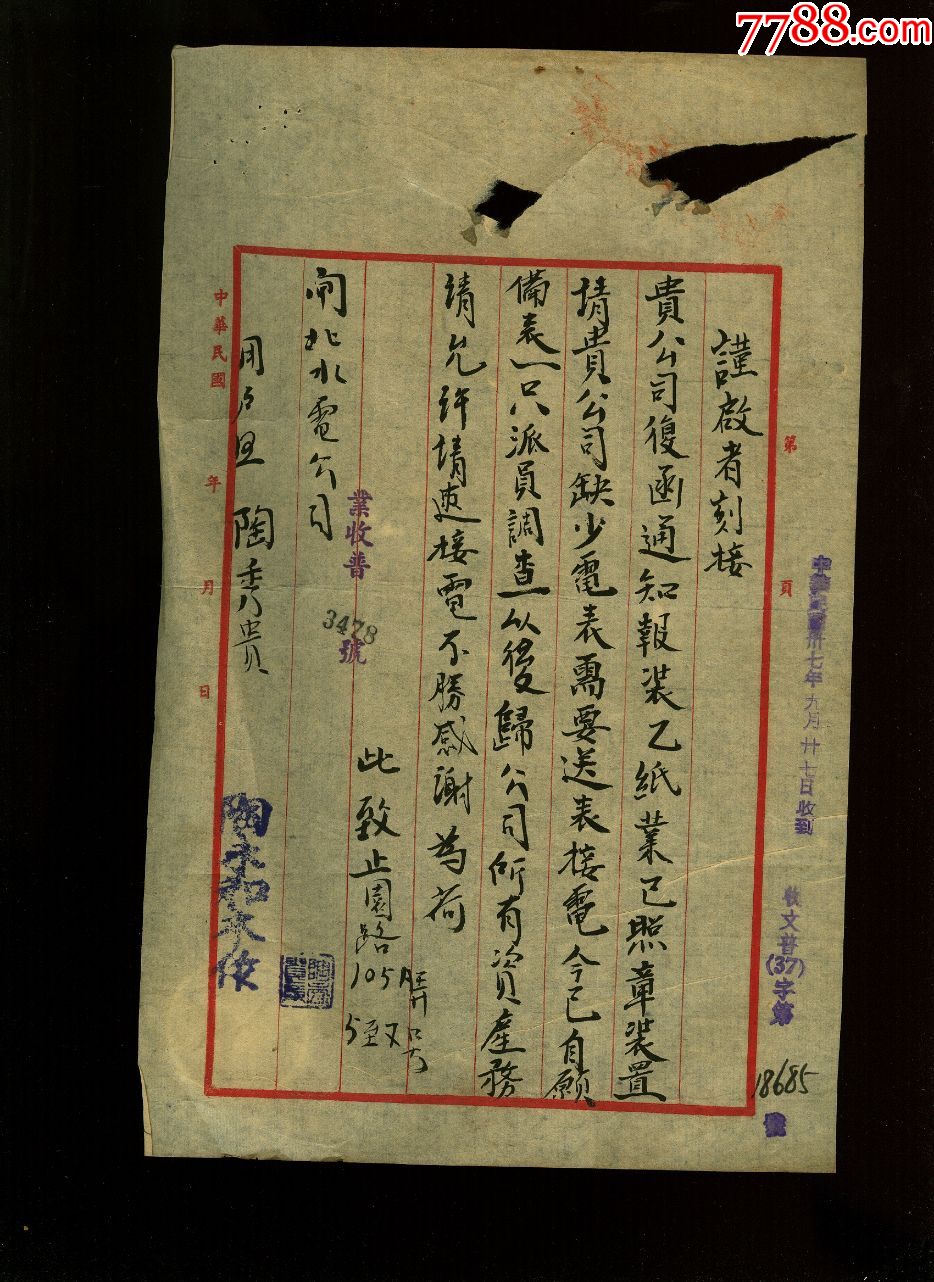 7788.com
謹啟者刻接
貴公司復函通知報装乙紙業已照章装置
請貴公司缺少電表需要送表接電今已自願
備表一只派員調查以後歸公司所有資產務
請允許請速接電不勝感謝為荷
此致
止園路105弄
5至7
閘北水電公司
業收普
3478
號
用户 陶秀貴
中華民國 年 月 日
第 頁
中華民國卅七年九月廿七日收到
收文普(37)字第
18685
號